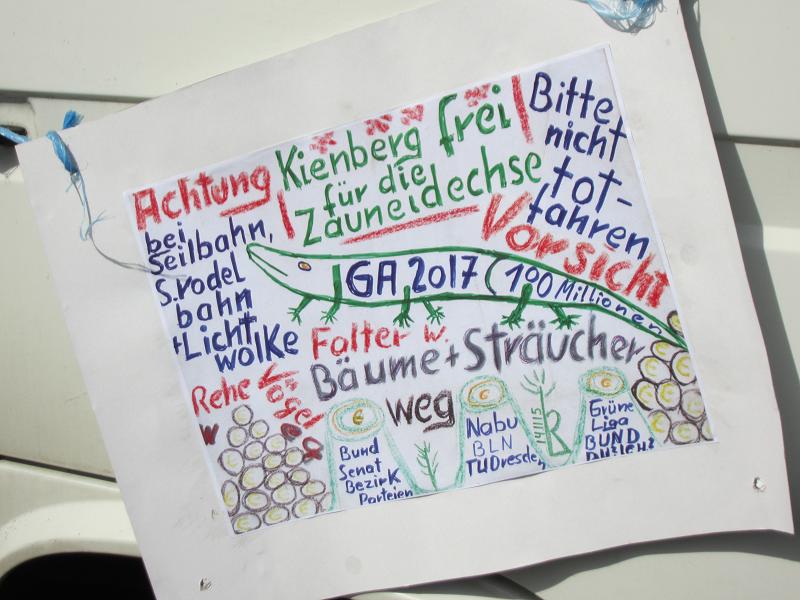 Achtung
bei
Seilbahn,
S.rodel
bahn
+Licht
wolke
Kienberg frei
für die
Zauneidechse
Bitte
nicht
tot-
fahren
Vorsicht
IGA 2017 (100 Millionen
Falter w.
Bäume + Sträucher
weg
Rehe
Vögel
Bund
Senat
Bezirk
Parteien
Nabu
BLN
TU Dresden
14/11/15
R
Grüne
Liga
BUND